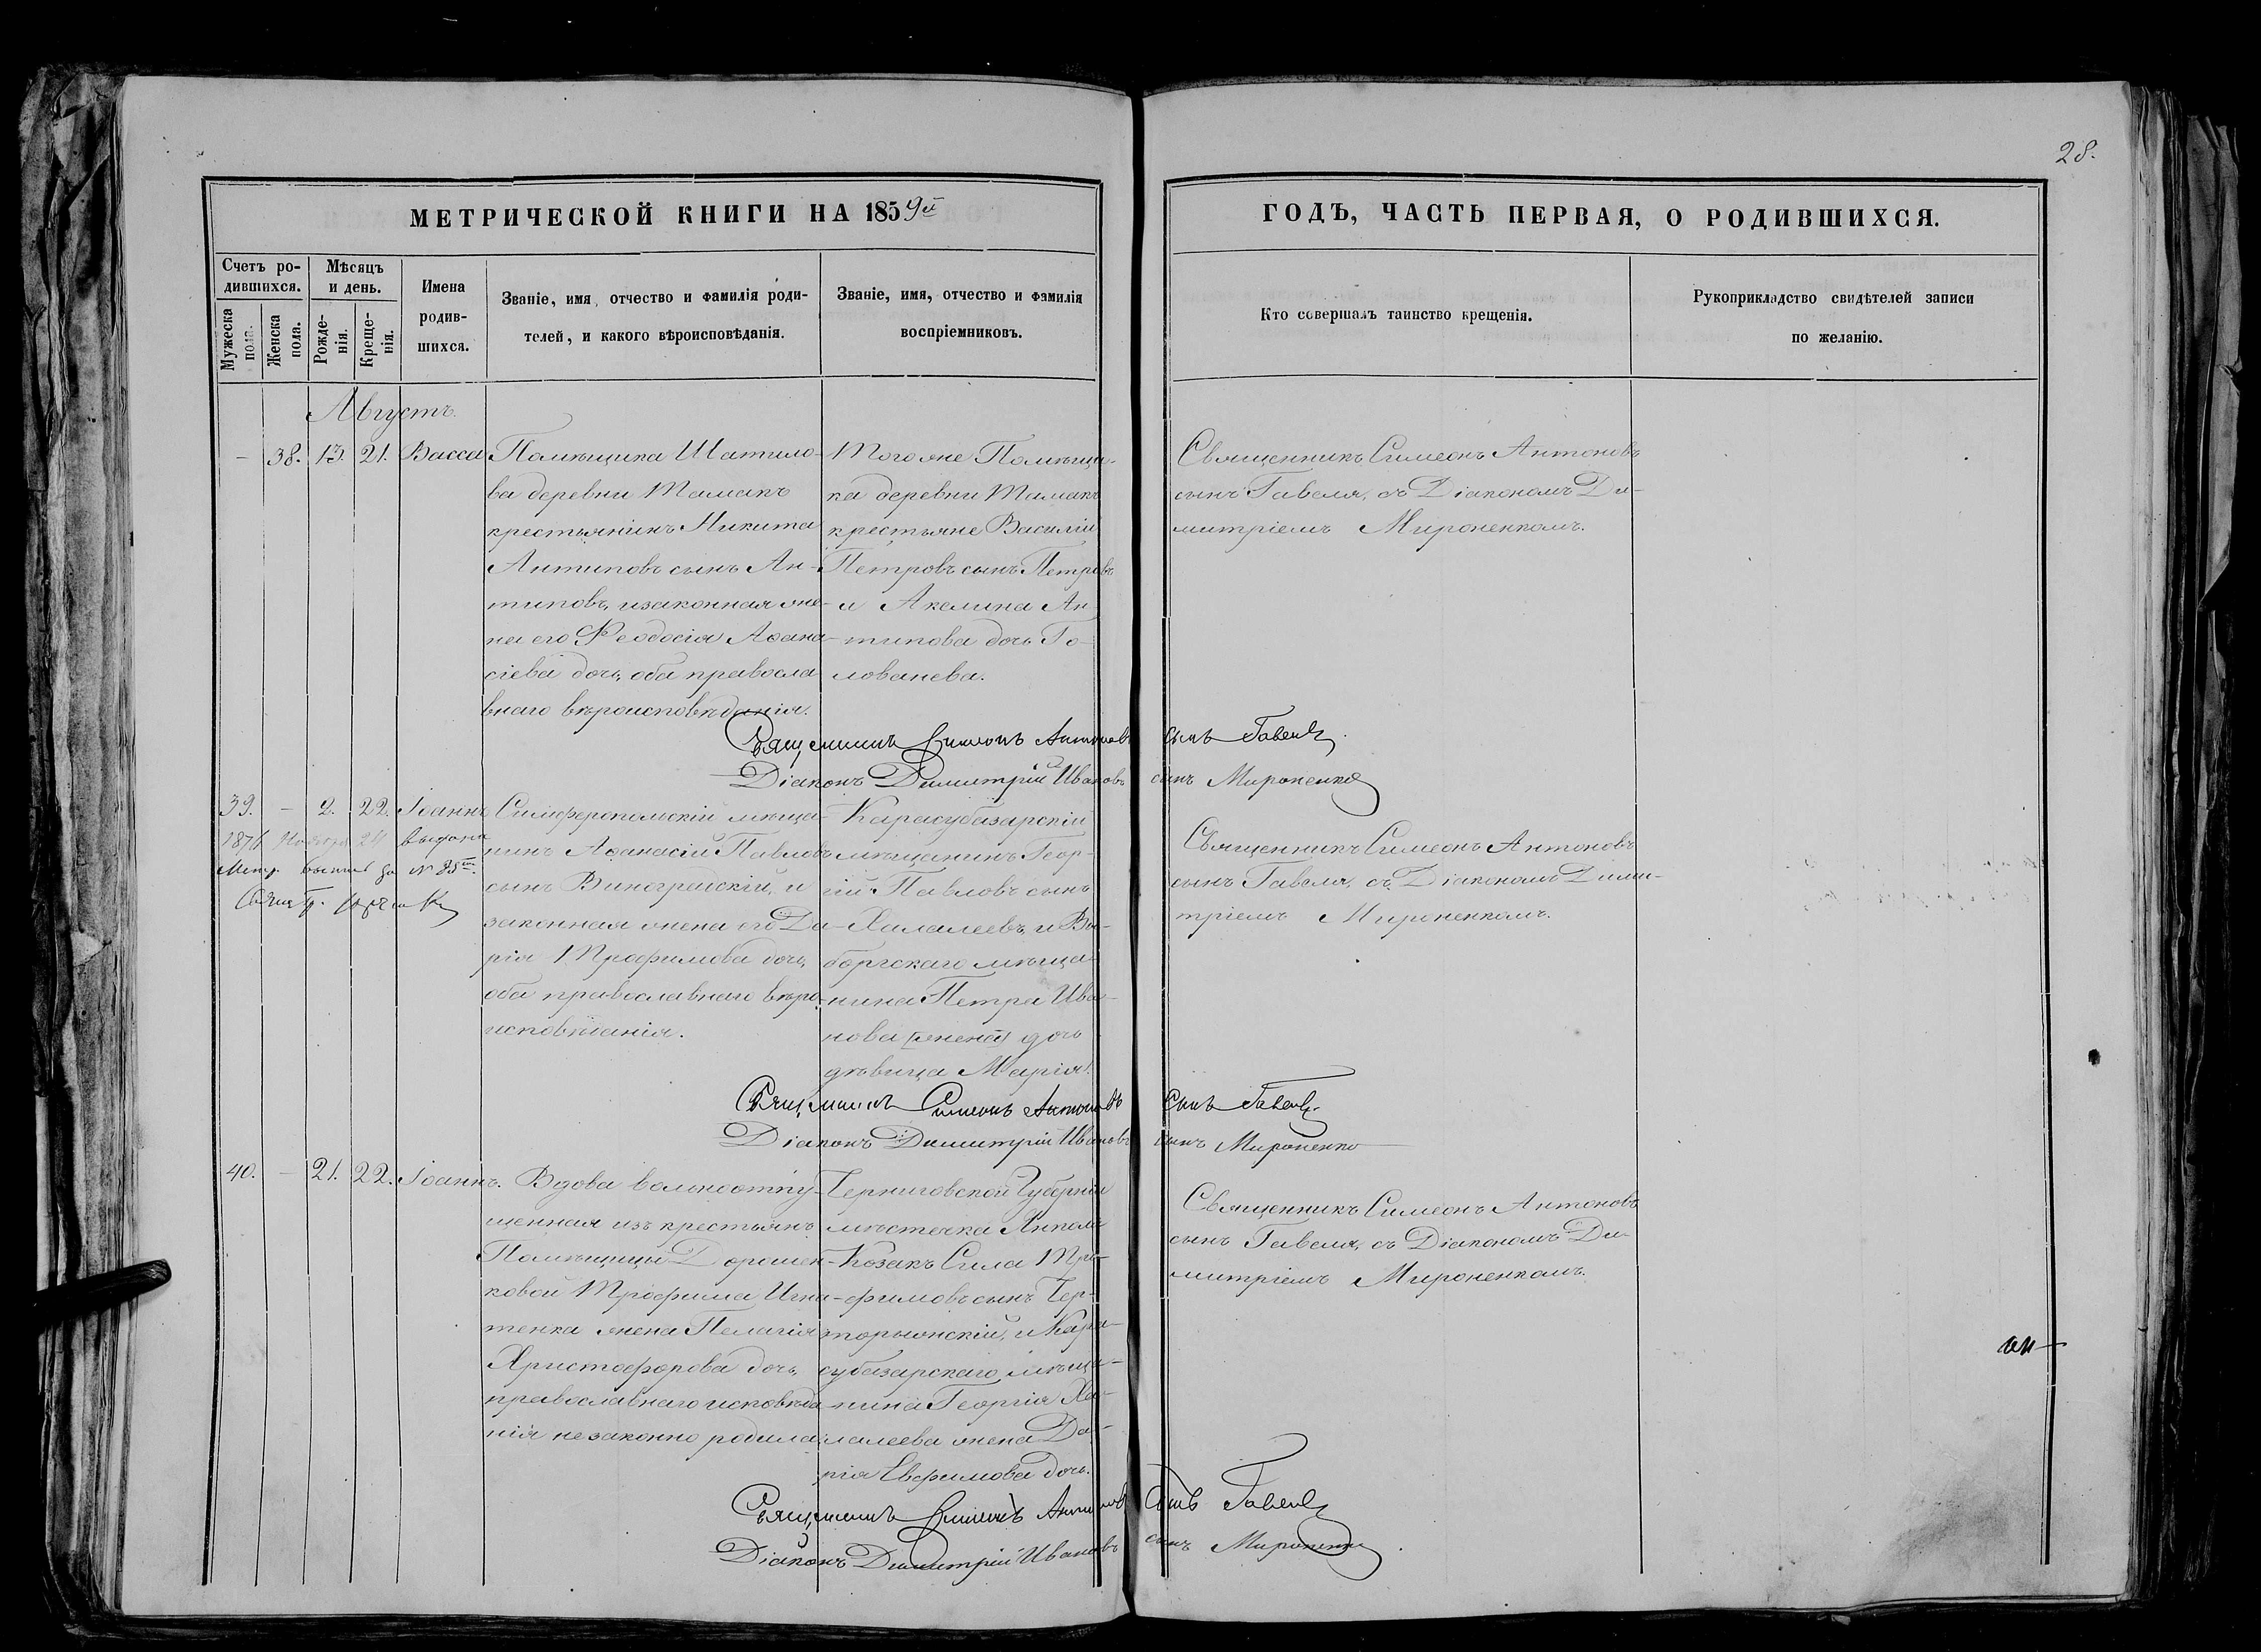 28.
МЕТРИЧЕСКОЙ КНИГИ НА 1859й
ГОДЪ, ЧАСТЬ ПЕРВАЯ, О РОДИВШИХСЯ.
Счетъ ро-
дившихся.
Мужеска
пола.
Женска
пола.
Мѣсяцъ
и день.
Рожде-
нія.
Креще-
нія.
Имена
родив-
шихся.
Званіе, имя, отчество и фамилія роди-
телей, и какого вѣроисповѣданія.
Званіе, имя, отчество и фамилія
воспріемниковъ.
Кто совершалъ таинство крещенія.
Рукоприкладство свидѣтелей записи
по желанію.
Августъ.
— 38. 13. 21. Васса
Помѣщика Шатило-
ва деревни Тамакъ
крестьянинъ Никита
Антиповъ сынъ Ан-
типовъ, и законная же-
на его Феодосія Аѳана-
сіева дочь, оба правосла-
внаго вѣроисповѣданія.
Того же Помѣщи-
ка деревни Тамакъ
крестьяне Василій
Петровъ сынъ Петровъ
и Акелина Ан-
типова дочь Го-
лованева.
Священникъ Симеонъ Антоновъ
сынъ Гавеля, съ Діакономъ Ди-
митріемъ Мироненкомъ.
Священникъ Симеонъ Антоновъ сынъ Гавеля
Діаконъ Димитрій Ивановъ сынъ Мироненко
39. — 2. 22. Іоаннъ
1876 Ноября 24 выдана
Метр. №
Симферопольскій мѣща-
нинъ Аѳанасій Павловъ
сынъ Виноградскій, и
законная жена его Да-
рія Трофимова дочь,
оба православнаго вѣро-
исповѣданія.
Карасубазарскій
мѣщанинъ Геор-
гій Павловъ сынъ
Халалеевъ, и Вы-
боргскаго мѣща-
нина Петра Ива-
нова (жена) дочь
дѣвица Марія.
Священникъ Симеонъ Антоновъ
сынъ Гавеля, съ Діакономъ Дими-
тріемъ Мироненкомъ.
Священникъ Симеонъ Антоновъ сынъ Гавеля
Діаконъ Димитрій Ивановъ сынъ Мироненко
40. — 21. 22. Іоаннъ.
Вдова вольноотпу-
щенная изъ крестьянъ
Помѣщицы Дорошен-
ковой Трофима Игна-
тенка жена Пелагія
Христофорова дочь,
православнаго исповѣда-
нія незаконно родила.
Черниговской Губерніи
мѣстечка
Козакъ Сила Тро-
фимовъ сынъ Чер-
торыжскій, и Кара-
субазарскаго мѣща-
нина Георгія Ха-
лалеева жена Да-
рія Евфимова дочь.
Священникъ Симеонъ Антоновъ
сынъ Гавеля, съ Діакономъ Ди-
митріемъ Мироненкомъ.
Священникъ Симеонъ Антоновъ сынъ Гавеля
Діаконъ Димитрій Ивановъ сынъ Мироненко